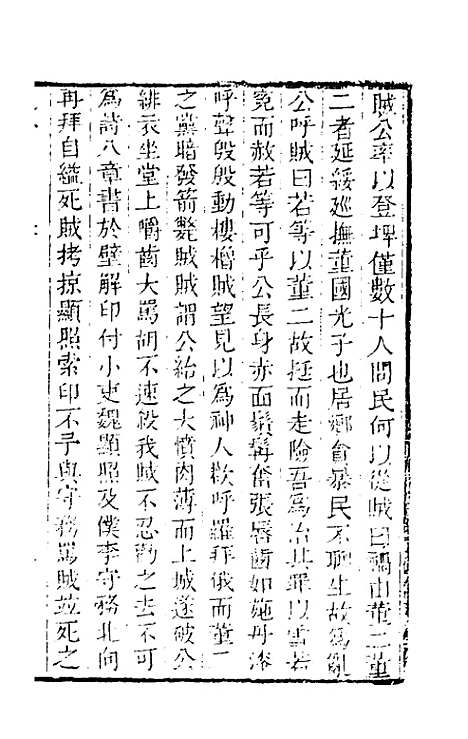 賊公率以登埤僅數十人問民何以從賊曰禍由董二董
二者延綏廵撫董國光子也居鄉貪暴民不聊生故爲亂
公呼賊曰若等以董二故挺而走險吾爲治其罪以雪若
寃而赦若等可乎公長身赤面鬚髯俻張唇齒如施丹漆
呼聲殷殷動樓櫓賊望見以爲神人歡呼羅拜俄而董二
之黨暗發箭斃賊賊謂公紿之大憤肉薄而上城遂破公
緋衣坐堂上嚼齒大罵胡不速殺我賊不忍勸之去不可
爲詩八章書於壁解印付小吏魏顯照及僕李守務北向
再拜自縊死賊拷掠顯照索印不予與守務罵賊並死之